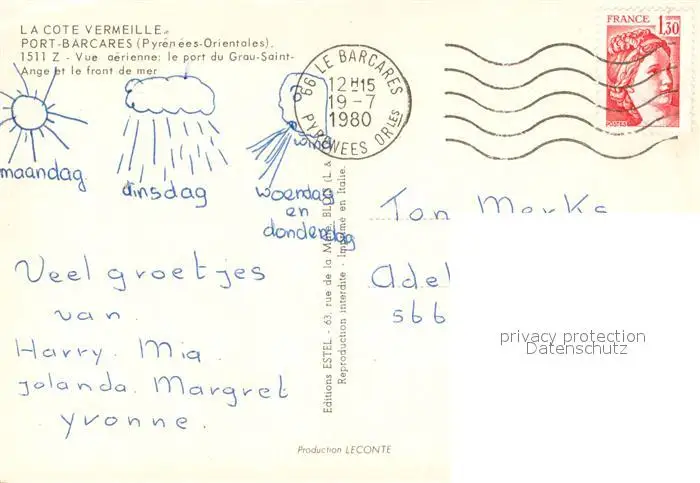 LA COTE VERMEILLE.
PORT-BARCARES (Pyrénées-Orientales).
1511 Z - Vue aérienne: le port du Grau-Saint-
Ange et le front de mer
66 LE BARCARES
12H15
19-7
1980
PYRENEES ORles
FRANCE
1,30
POSTES
maandag
dinsdag
wind
woendag
en
donderdag
Veel groetjes
van
Harry. Mia
jolanda. Margret
yvonne.
Ton
Adel
566
Editions ESTEL - 63, rue de la
Reproduction interdite - Imprimé en Italie.
Production LECONTE
privacy protection
Datenschutz